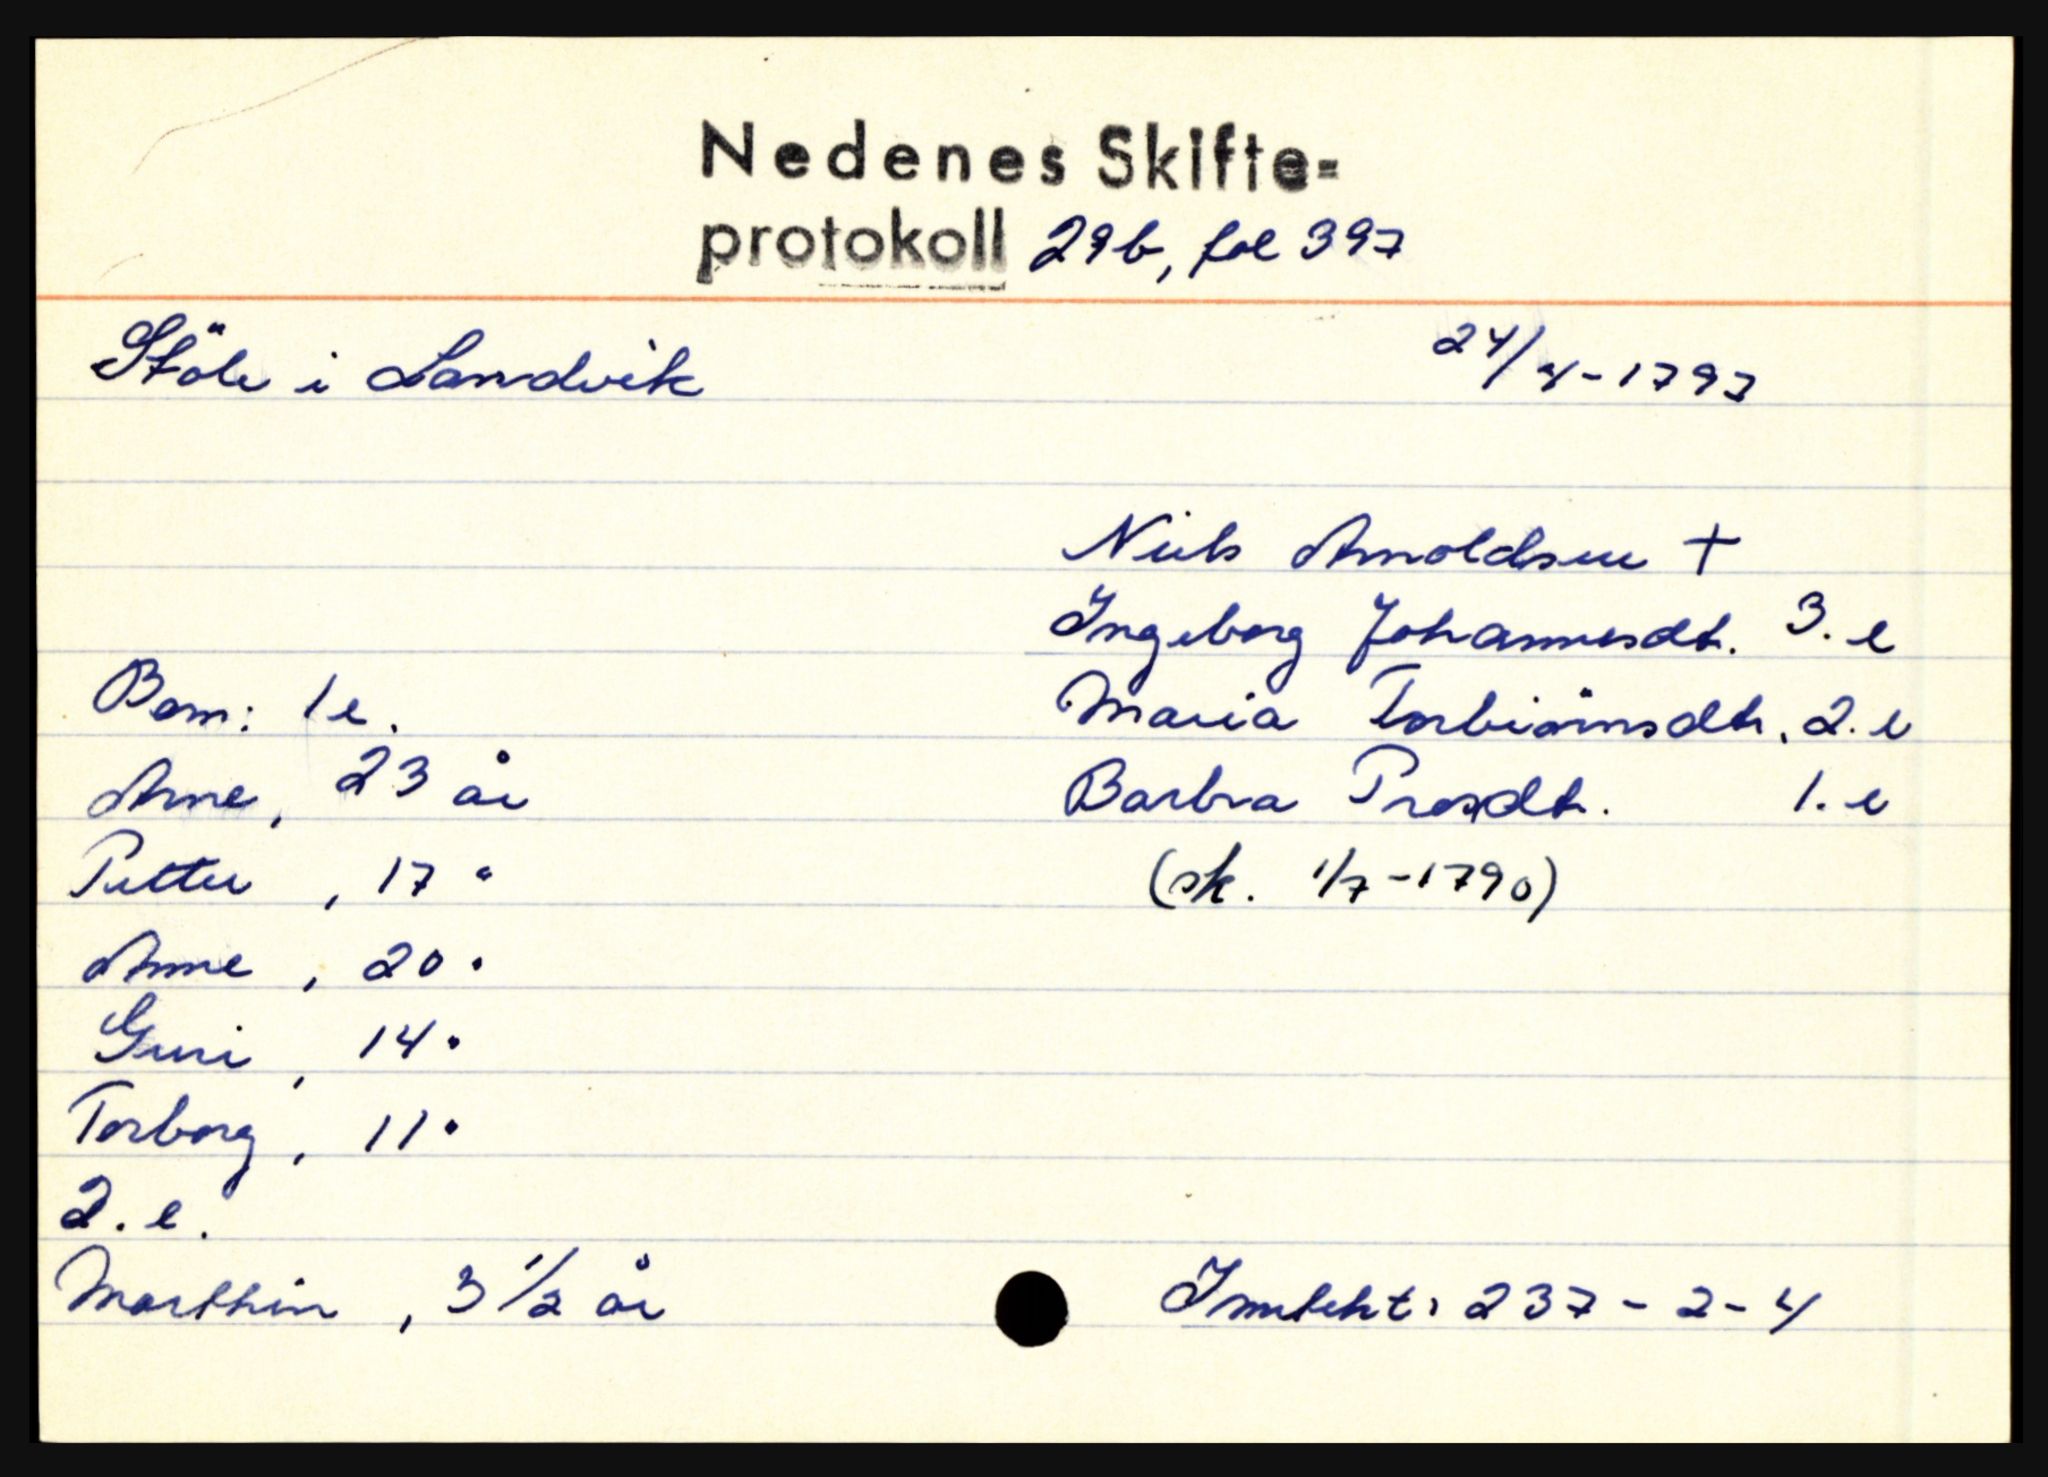 Nedenes Skifte=
protokoll 29b, fol 397
Stöle i Landvik 24/4-1797
Niels Arnoldsen +
Ingeborg Johannesdt. 3. e
Maria Torbiörnsdtr. 2. e
Barbra dt. 1. e
(sk. 1/7-1790)
Barn: 1 e.
Arne, 23 år
Petter, 17 "
Anne, 20 "
Guri, 14 "
Torborg, 11 "
2. e.
Marthin, 3 1/2 år
Inntekt: 237-2-4